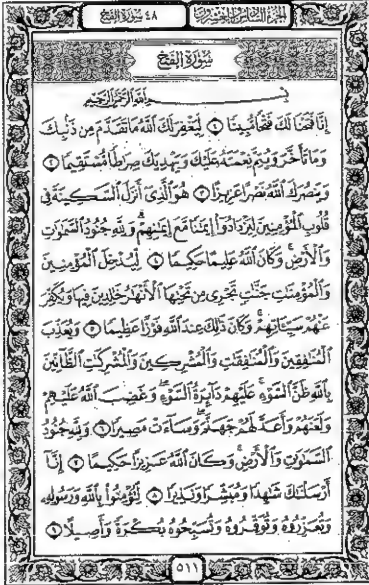 ٤٨ سورة الفتح
الجزء السادس والعشرون
سُورَةُ الفَتْحِ
بِسْمِ اللَّهِ الرَّحْمَٰنِ الرَّحِيمِ
إِنَّا فَتَحْنَا لَكَ فَتْحًا مُّبِينًا ١ لِّيَغْفِرَ لَكَ اللَّهُ مَا تَقَدَّمَ مِن ذَنۢبِكَ
وَمَا تَأَخَّرَ وَيُتِمَّ نِعْمَتَهُۥ عَلَيْكَ وَيَهْدِيَكَ صِرَٰطًا مُّسْتَقِيمًا ٢
وَيَنصُرَكَ اللَّهُ نَصْرًا عَزِيزًا ٣ هُوَ الَّذِىٓ أَنزَلَ السَّكِينَةَ فِى
قُلُوبِ الْمُؤْمِنِينَ لِيَزْدَادُوٓا۟ إِيمَٰنًا مَّعَ إِيمَٰنِهِمْ ۗ وَلِلَّهِ جُنُودُ السَّمَٰوَٰتِ
وَالْأَرْضِ ۚ وَكَانَ اللَّهُ عَلِيمًا حَكِيمًا ٤ لِّيُدْخِلَ الْمُؤْمِنِينَ
وَالْمُؤْمِنَٰتِ جَنَّٰتٍ تَجْرِى مِن تَحْتِهَا الْأَنْهَٰرُ خَٰلِدِينَ فِيهَا وَيُكَفِّرَ
عَنْهُمْ سَيِّـَٔاتِهِمْ ۚ وَكَانَ ذَٰلِكَ عِندَ اللَّهِ فَوْزًا عَظِيمًا ٥ وَيُعَذِّبَ
الْمُنَٰفِقِينَ وَالْمُنَٰفِقَٰتِ وَالْمُشْرِكِينَ وَالْمُشْرِكَٰتِ الظَّآنِّينَ
بِاللَّهِ ظَنَّ السَّوْءِ ۚ عَلَيْهِمْ دَآئِرَةُ السَّوْءِ ۖ وَغَضِبَ اللَّهُ عَلَيْهِمْ
وَلَعَنَهُمْ وَأَعَدَّ لَهُمْ جَهَنَّمَ ۖ وَسَآءَتْ مَصِيرًا ٦ وَلِلَّهِ جُنُودُ
السَّمَٰوَٰتِ وَالْأَرْضِ ۚ وَكَانَ اللَّهُ عَزِيزًا حَكِيمًا ٧ إِنَّآ
أَرْسَلْنَٰكَ شَٰهِدًا وَمُبَشِّرًا وَنَذِيرًا ٨ لِّتُؤْمِنُوا۟ بِاللَّهِ وَرَسُولِهِۦ
وَتُعَزِّرُوهُ وَتُوَقِّرُوهُ وَتُسَبِّحُوهُ بُكْرَةً وَأَصِيلًا ٩
٥١١